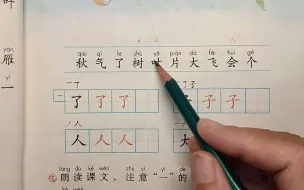 叶
yàn
雁
一
qiū qì le shù yè piàn dà fēi huì gè
秋气了树叶片大飞会个
了 子
了了了 子子
人
人人人 大
lǎng dú kè wén zhù yì yī de
朗读课文，注意“一”的